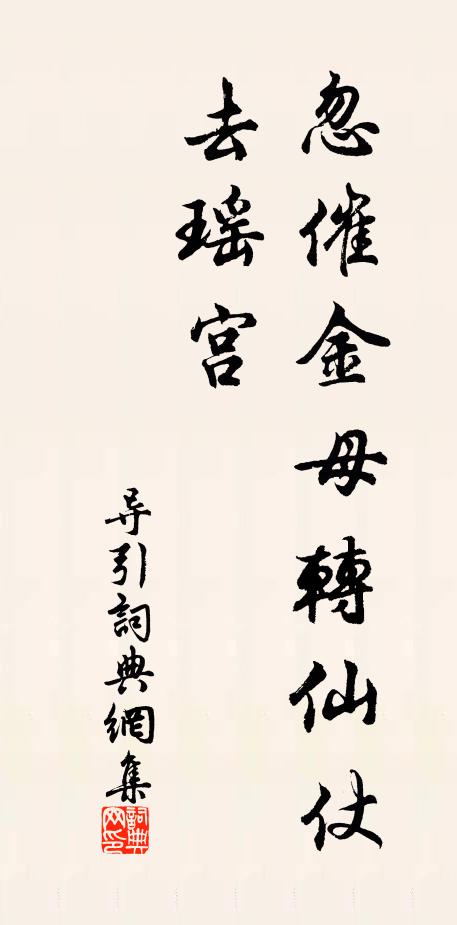 忽催金母轉仙仗
去瑶宫
导引詞典網集
詞典网印